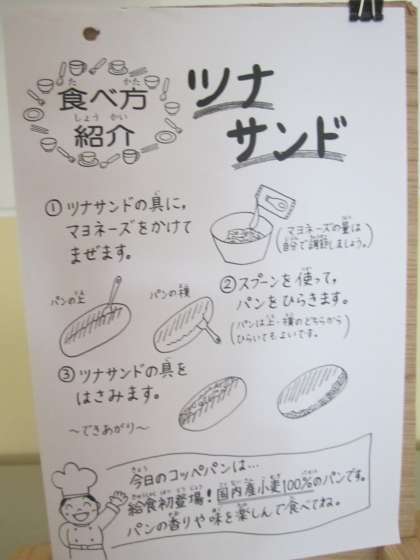 食べ方
紹介
ツナ
サンド
①ツナサンドの具に、
マヨネーズをかけて
まぜます。
(マヨネーズの量は
自分で調節しましょう。)
パンの上
パンの横
②スプーンを使って、
パンをひらきます。
(パンは上・横のどちらから
ひらいてもよいです。)
③ツナサンドの具を
はさみます。
～できあがり～
今日のコッペパンは…
給食初登場！国内産小麦100%のパンです。
パンの香りや味を楽しんで食べてね。